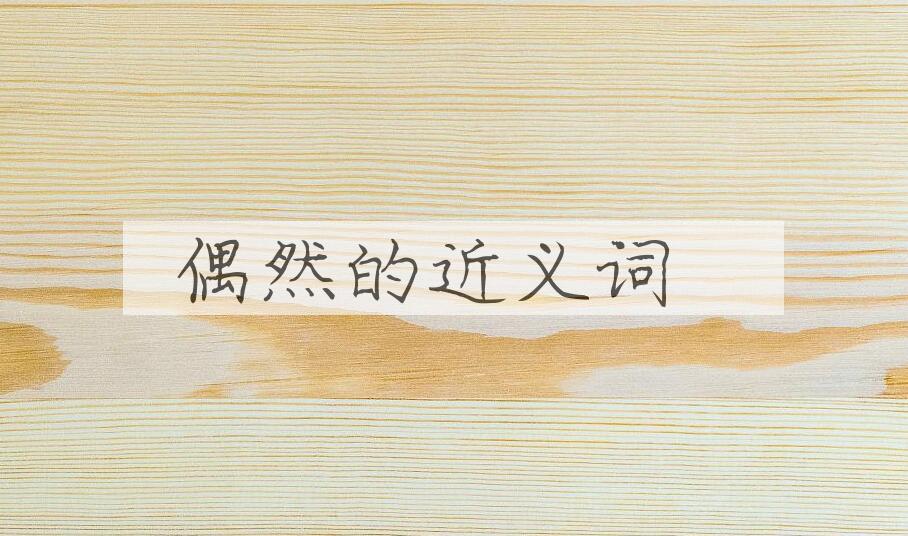 偶然的近义词